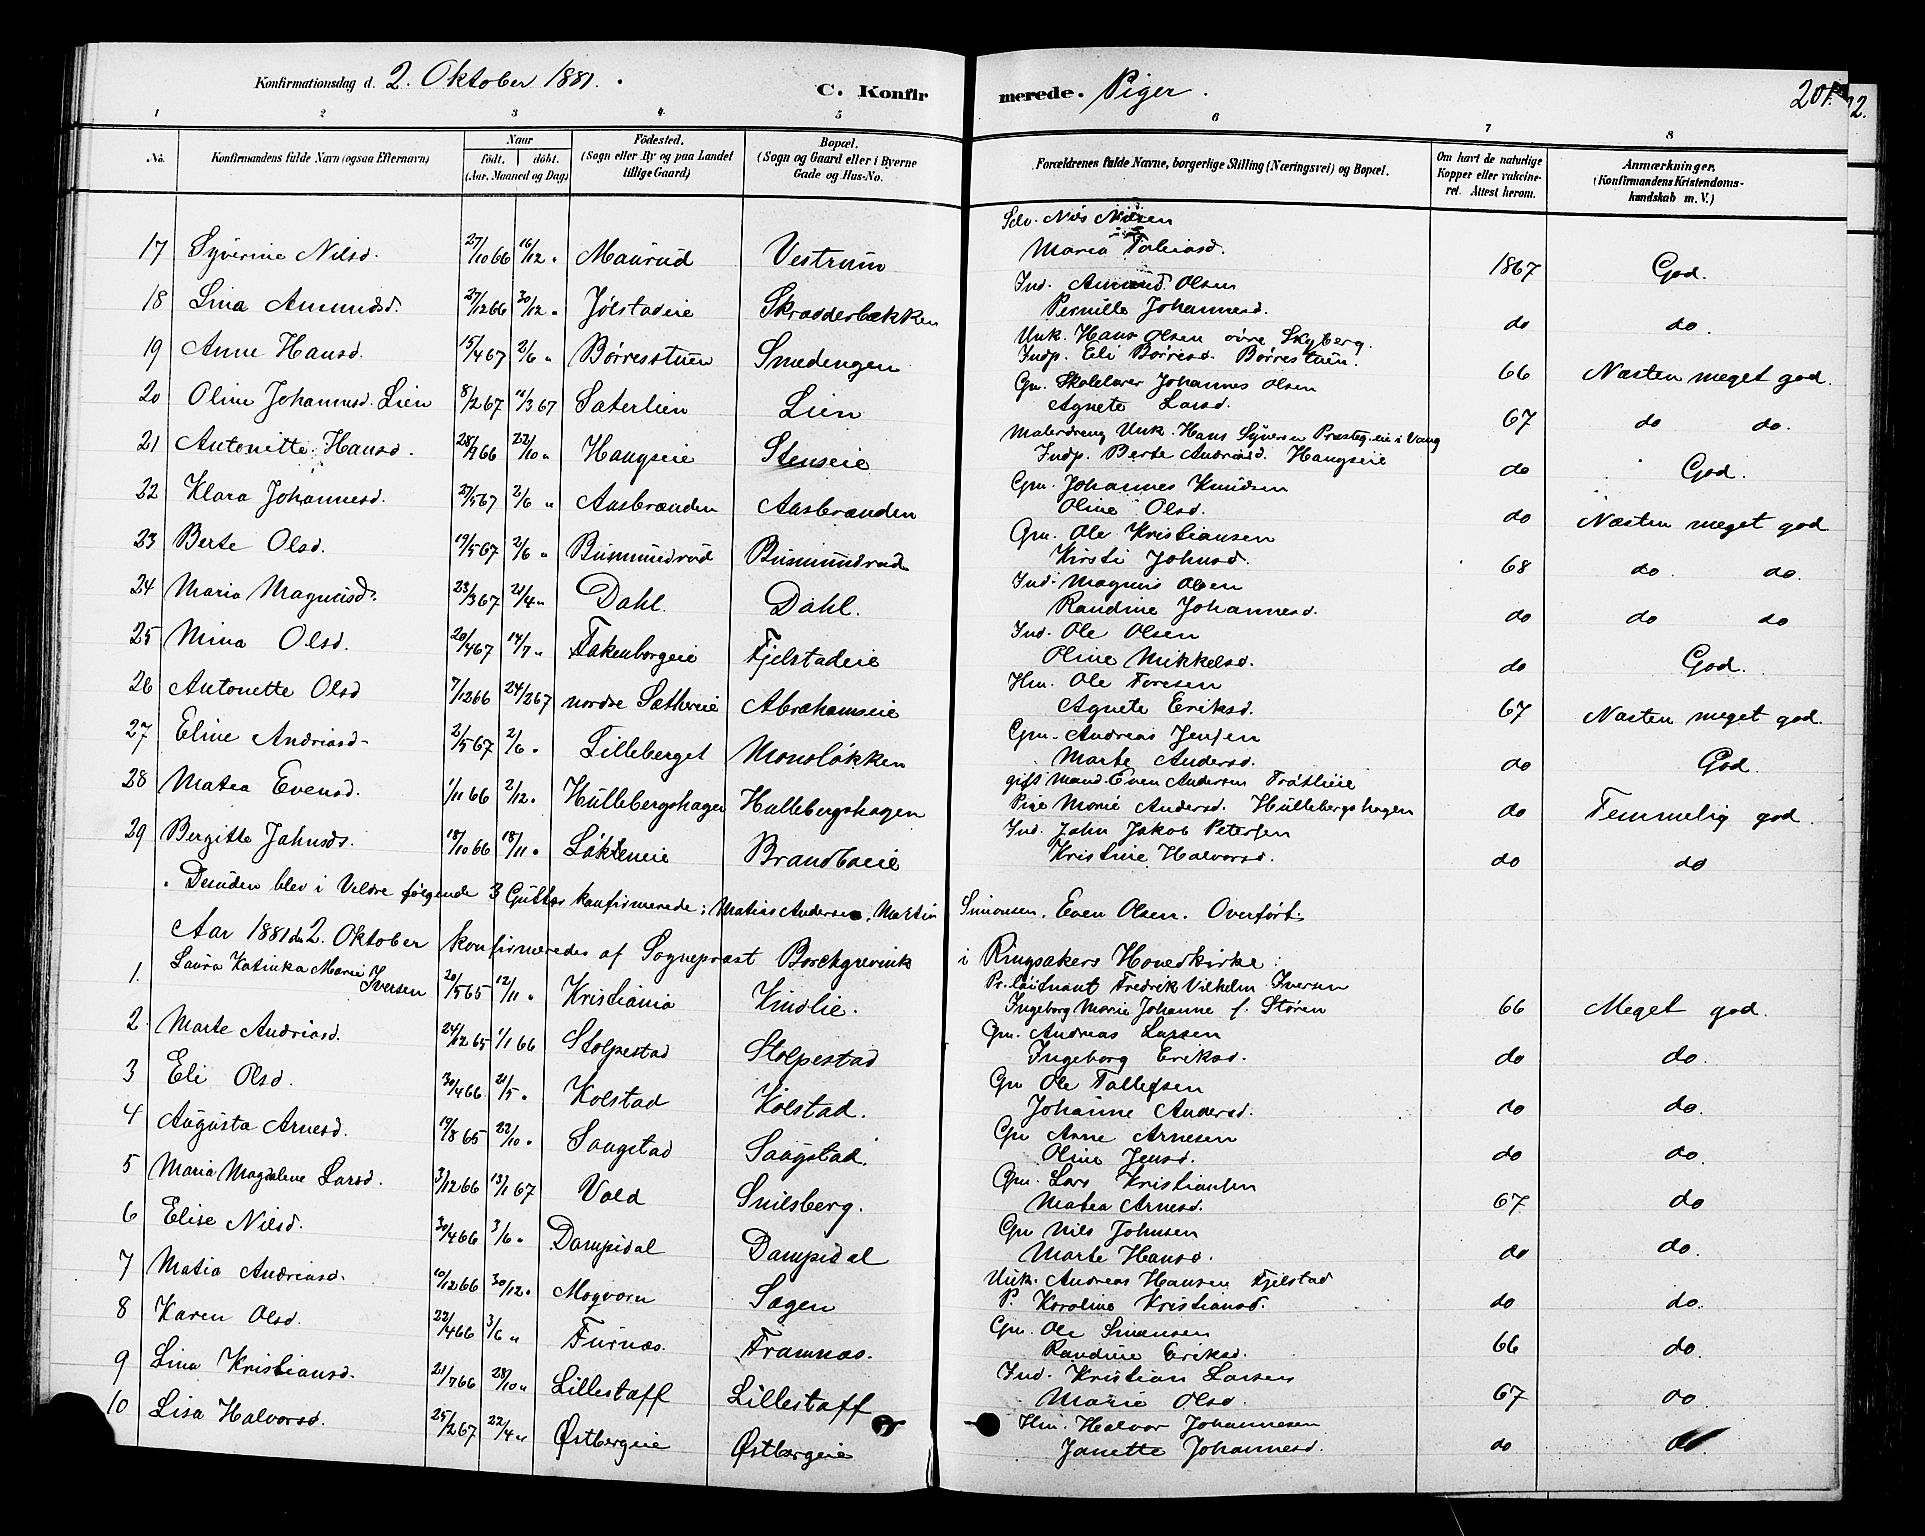 Konfirmationsdag d. 2. Oktober 1881. C. Konfirmerede. Piger. 201.
1 2 3 4 5 6 7 8
No. Konfirmandens fulde Navn (ogsaa Efternavn) Naar født. døbt. (Aar, Maaned og Dag) Fødested. (Sogn eller By og paa Landet tillige Gaard) Bopæl. (Sogn og Gaard eller i Byerne Gade og Hus-No. Forældrenes fulde Navne, borgerlige Stilling (Næringsvei) og Bopæl. Om havt de naturlige Kopper eller vakcineret. Attest herom. Anmærkninger, (Konfirmandens Kristendomskundskab m. V.)
17 Syverine Nilsd. 27/10 66 16/12 " Maurud Vestrum Selv. Nils Nilsen Maria Tobiasd. 1867 God.
18 Lina Amundsd. 27/12 66 30/12 " Jølstadeie Skrædderbækken Ind. Amund Olsen Pernille Johannesd. do do.
19 Anne Hansd. 15/4 67 2/6 " Børresstuen Smedengen Unk. Hans Olsen øvre Skyberg. Indp. Eli Børresd. Børrestuen. 66 Næsten meget god.
20 Oline Johannesd. Lien 8/2 67 11/3 67 Sæterlien Lien Gm. Skolelærer Johannes Olsen Agnete Larsd. 67 do do.
21 Antonette Hansd. 28/9 66 22/10 " Haugseie Stenseie Malerdreng Unk. Hans Syversen Præstegeie i Vang Indp. Berte Andriasd. Haugseie do God.
22 Klara Johannesd. 27/5 67 2/6 " Aasbrænden Aasbrænden Gm. Johannes Knudsen Oline Olsd. do Næsten meget god
23 Berte Olsd. 19/5 67 2/6 " Busmundrud Busmundrud Gm. Ole Kristiansen Kirsti Johnsd. 68 do. do.
24 Maria Magnusd. 23/3 67 21/4 " Dahl. Dahl. Ind. Magnus Olsen Randine Johannesd. do do do
25 Mina Olsd. 20/4 67 14/7 " Fakenborgeie Fjelstadeie Ind. Ole Olsen Oline Mikkelsd. do God.
26 Antonette Olsd 7/12 66 24/2 67 nordre Sæthereie Abrahamseie Hm. Ole Toresen Agnete Eriksd. 67 Næsten meget god.
27 Eline Andriasd. 2/5 67 2/6 " Lilleberget Monsløkken Gm. Andreas Jensen Marte Andersd. do God.
28 Matea Evensd. 1/11 66 2/12 " Hullebergshagen Hullebergshagen gift Mand Even Andersen Pige Marie Andersd. Hullebergshagen do Temmelig god.
29 Bergitte Jahnsd. 18/10 66 18/11 " Løkteneie Brandboeie Ind. Jahn Jakob Petersen Kristine Halvorsd. do do
Desuden blev i Veldre følgende 3 Gutter konfirmerede: Matias Andersen, Martin Simonsen, Even Olsen. Overført.
Aar 1881 den 2. Oktober konfirmeredes af Sognepræst Borchgrevink i Ringsakers Hovedkirke:
1. Laura Katinka Marie Iversen 20/5 65 12/11 " Kristiania Kindlie. Pr. løitnant Fredrik Vilhelm Iversen Ingeborg Marie Johanne f. Støren 66 Meget god.
2. Marte Andriasd. 24/12 65 1/1 66 Stolpestad Stolpestad Gm. Andreas Larsen Ingeborg Eriksd. do do.
3 Eli Olsd. 30/4 66 21/5 " Kolstad Kolstad. Gm Ole Tollefsen Johanne Andersd. do do.
4 Augusta Arnesd. 19/8 65 22/10 " Saugstad Saugstad. Gm Arne Arnesen Oline Jensd. do do.
5 Maria Magdalene Larsd. 3/12 66 13/1 67 Vold Snilsberg. Gm. Lars Kristiansen Matea Arnesd. 67 do
6 Elise Nilsd. 30/4 66 3/6 " Dampidal Dampidal Gm Nils Johnsen Marte Hansd. do do.
7 Matia Andriasd. 10/12 66 30/12 " Mogvorn Sagen Unk. Andreas Hansen Fjelstad P. Karoline Kristiansd. do do.
8 Karen Olsd. 22/4 66 3/6 " Furnæs. Framnæs. Gm. Ole Simensen Randine Eriksd. 66 do.
9 Lina Kristiansd. 21/7 66 28/10 " Lillestaff Lillestaff Ind. Kristian Larsen Marie Olsd. 67 do.
10 Lisa Halvorsd. 25/2 67 22/4 " Østbergeie Østbergeie Hm. Halvor Johannesen Janette Johannesd. do do